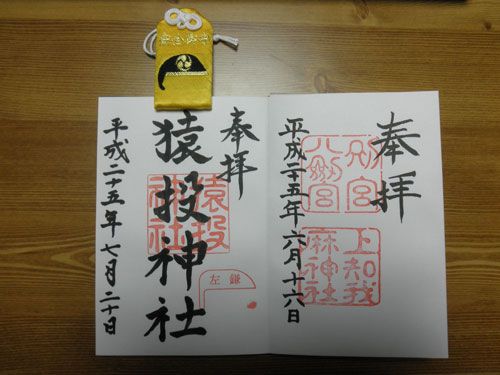 安全御守
奉拝
別宮
八剱宮
上知我
麻神社
平成二十五年六月十六日
奉拝
猿投神社
猿投
神社
左鎌
平成二十五年七月二十日